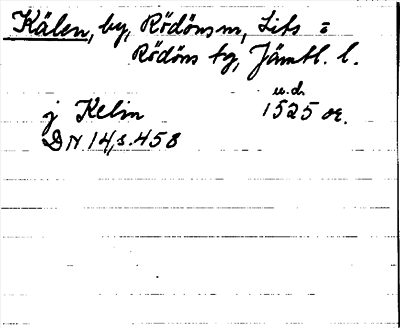 Kälen, by, Rödöns sn, Lits =
Rödöns tg, Jämtl. l.
u.d.
j Kelin 1525 or.
DN 14, s. 458